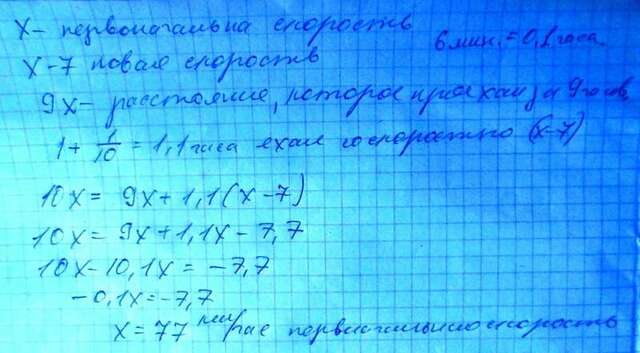 x – первоначальна скорость
6 мин. = 0,1 часа
x-7 новая скорость
9x – расстояние, которое проехал за 9 часов
1 + 1/10 = 1,1 часа ехал со скоростью (x-7)
10x = 9x + 1,1(x-7)
10x = 9x + 1,1x - 7,7
10x - 10,1x = -7,7
-0,1x = -7,7
x = 77 км/час первоначальная скорость